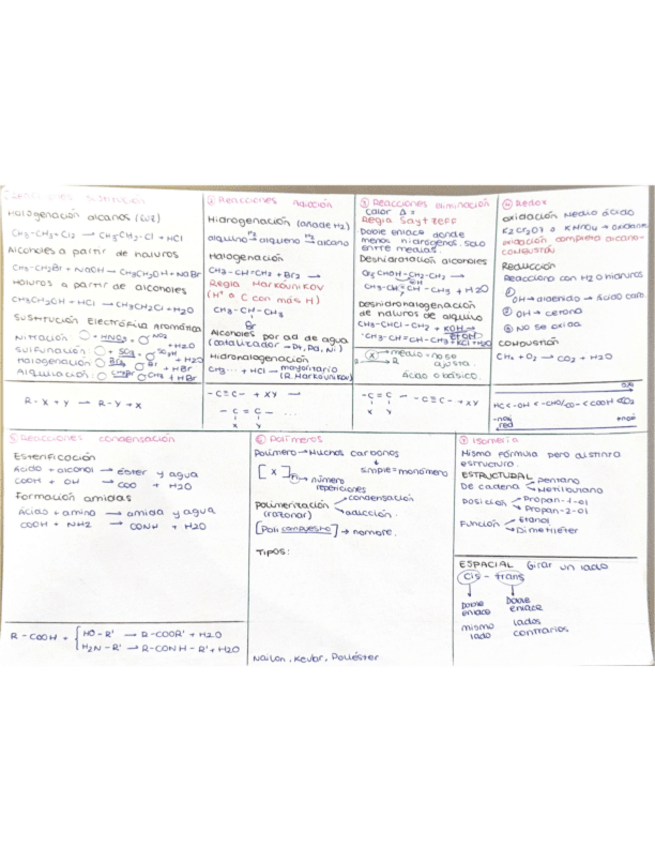 Reacciones sustitución
Halogenación alcanos (luz)
CH3-CH3 + Cl2 → CH3CH2-Cl + HCl
Alcoholes a partir de haluros
CH3-CH2Br + NaOH → CH3CH2OH + NaBr
Haluros a partir de alcoholes
CH3CH2OH + HCl → CH3CH2Cl + H2O
Sustitución Electrófila aromática
Nitración + HNO3 → NO2 + H2O
Sulfonación + SO3 → SO3H
Halogenación Br2 → Br + HBr
Alquilación: CH3Br → CH3 + HBr
R-X + Y → R-Y + X
② Reacciones Adición
Hidrogenación (añade H2)
alquino → H2 alqueno → H2 alcano
Halogenación
CH3-CH=CH2 + Br2 →
Regla MARKOVNIKOV
(H+ a C con más H)
CH3-CH-CH3
Br
Alcoholes por ad. de agua
(catalizador → Pt, Pd, Ni)
Hidrohalogenación
CH3... + HCl → mayoritario
(R. Markovnikov)
-C≡C- + XY → ...
-C=C-...
X Y
③ Reacciones eliminación
calor Δ =
Regla SaytzEFF
Doble enlace donde
menos hidrógenos. Solo
entre medias.
Deshidratación alcoholes
CH3CHOH-CH2-CH3 →
CH3-CH=CH-CH3 + H2O
Deshidrohalogenación
de haluros de alquilo
KOH →
EtOH
→ medio → no se
ajusta.
Ácido o básico.
④ Redox
Oxidación Medio ácido
K2Cr2O7 o KMnO4 → oxidante
oxidación completa alcano=
COMBUSTIÓN
REDUCCIÓN
Reacciona con H2 o hidruros
① OH → aldehído → ácido carb.
② OH → cetona
③ No se oxida
COMBUSTIÓN
CH4 + O2 → CO2 + H2O
oxi
+oxi
red
⑤ Reacciones condensación
Esterificación
Ácido + alcohol → éster y agua
COOH + OH → COO + H2O
Formación amidas
Ácido + amino → amida y agua
COOH + NH2 → CONH + H2O
R-COOH + { HO-R' → R-COOR' + H2O
H2N-R' → R-CONH-R' + H2O
⑥ Polímeros
Polímero → Muchos carbonos
simple = monómero
[X]n → número
repeticiones
Polimerización → condensación
(razonar) → adicción.
[Poli compuesto] → nombre.
TIPOS:
Nailon, Kevlar, Poliéster
⑦ Isomería
Misma fórmula pero distinta
estructura.
ESTRUCTURAL
De cadena → pentano
→ Metilbutano
Posición → Propan-1-ol
→ Propan-2-ol
Función → Etanol
→ Dimetiléter
ESPACIAL Girar un lado
Cis - trans
Doble enlace
Doble enlace
mismo lado
lados contrarios